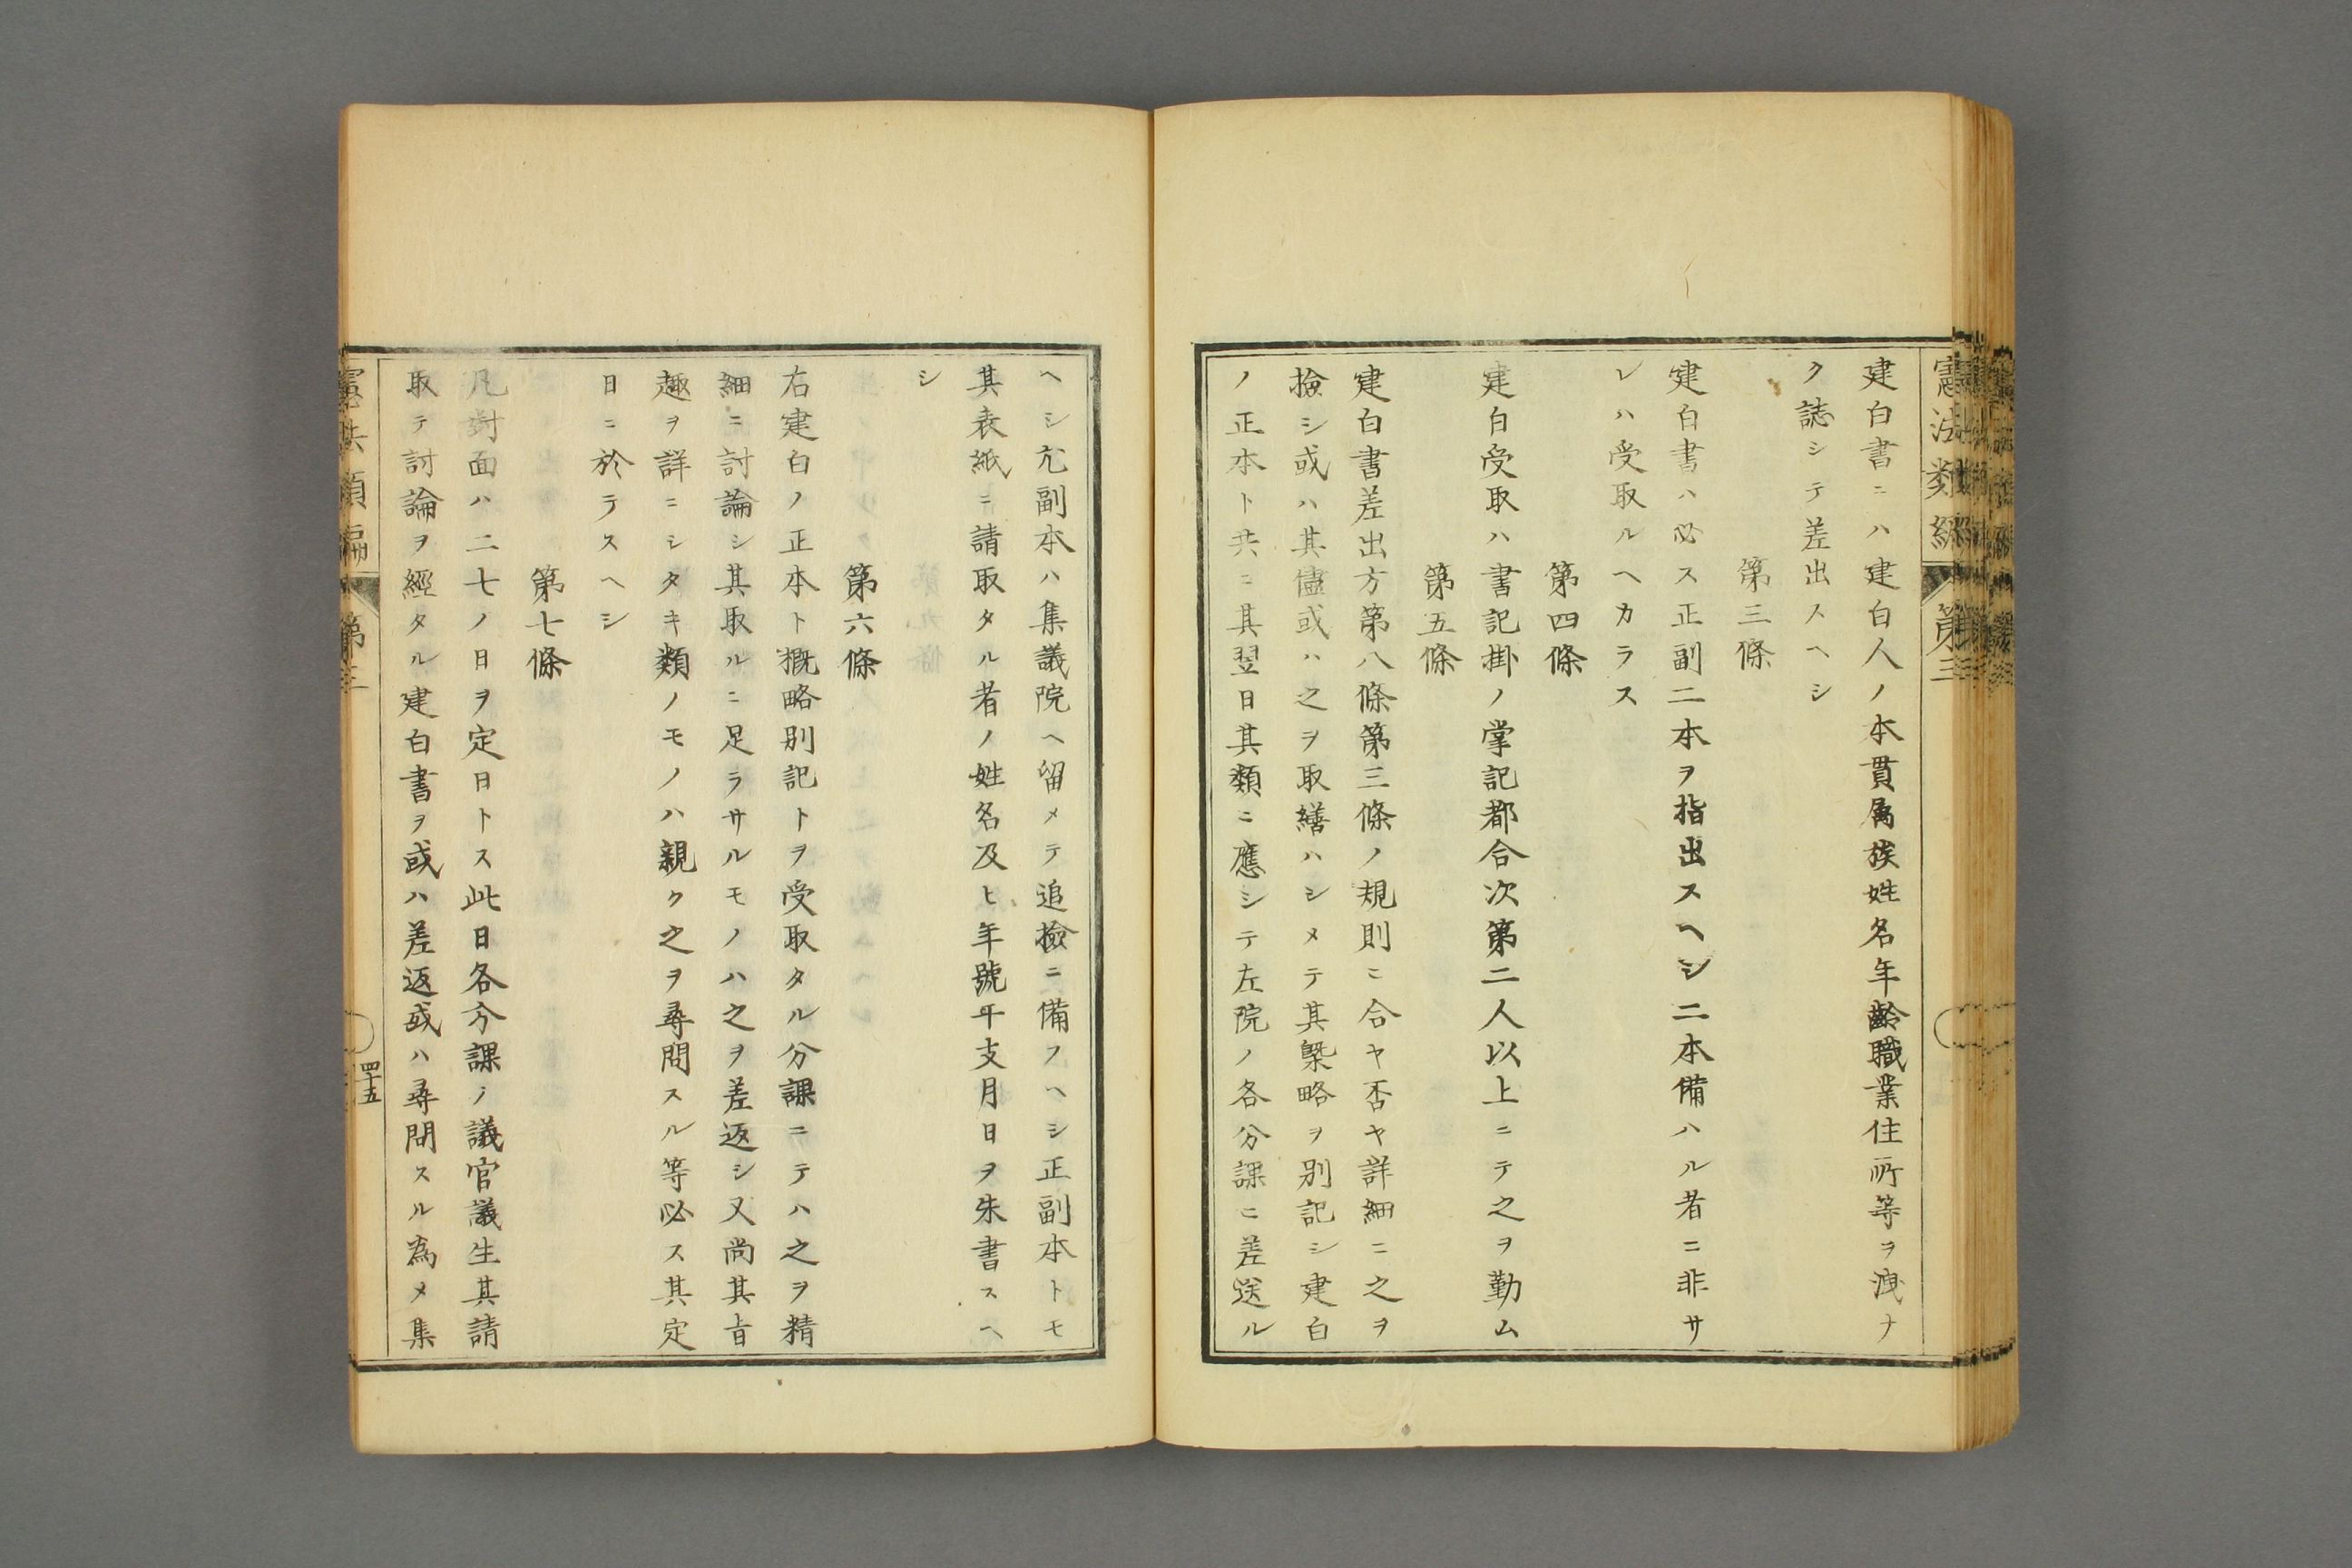 憲法類編
第三
建白書ニハ建白人ノ本貫属族姓名年齢職業住所等ヲ洩ナ
ク誌シテ差出スヘシ
第三條
建白書ハ必ス正副二本ヲ指出スヘシ二本備ハル者ニ非サ
レハ受取ルヘカラス
第四條
建白受取ハ書記掛ノ掌記都合次第二人以上ニテ之ヲ勤ム
第五條
建白書差出方第八條第三條ノ規則ニ合ヤ否ヤ詳細ニ之ヲ
撿シ或ハ其儘或ハ之ヲ取繕ハシメテ其槩略ヲ別記シ建白
ノ正本ト共ニ其翌日其類ニ應シテ左院ノ各分課ニ差送ル
ヘシ尤副本ハ集議院ヘ留メテ追撿ニ備フヘシ正副本トモ
其表紙ニ請取タル者ノ姓名及ヒ年號干支月日ヲ朱書スヘ
シ
第六條
右建白ノ正本ト概略別記トヲ受取タル分課ニテハ之ヲ精
細ニ討論シ其取ルニ足ラサルモノハ之ヲ差返シ又尚其旨
趣ヲ詳ニシタキ類ノモノハ親ク之ヲ尋問スル等必ス其定
日ニ於テスヘシ
第七條
凡對面ハ二七ノ日ヲ定日トス此日各分課ノ議官議生其請
取テ討論ヲ經タル建白書ヲ或ハ差返或ハ尋問スル為メ集
憲法類編
第三
四十五